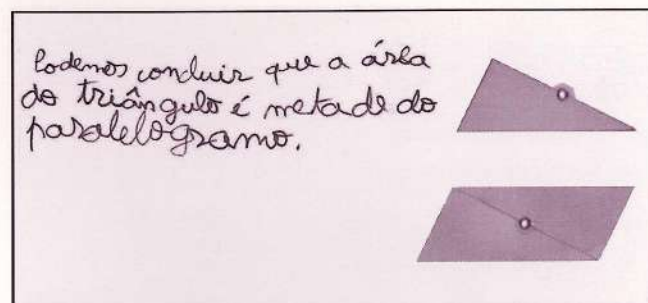 Podemos concluir que a área
do triângulo é metade do
paralelogramo.